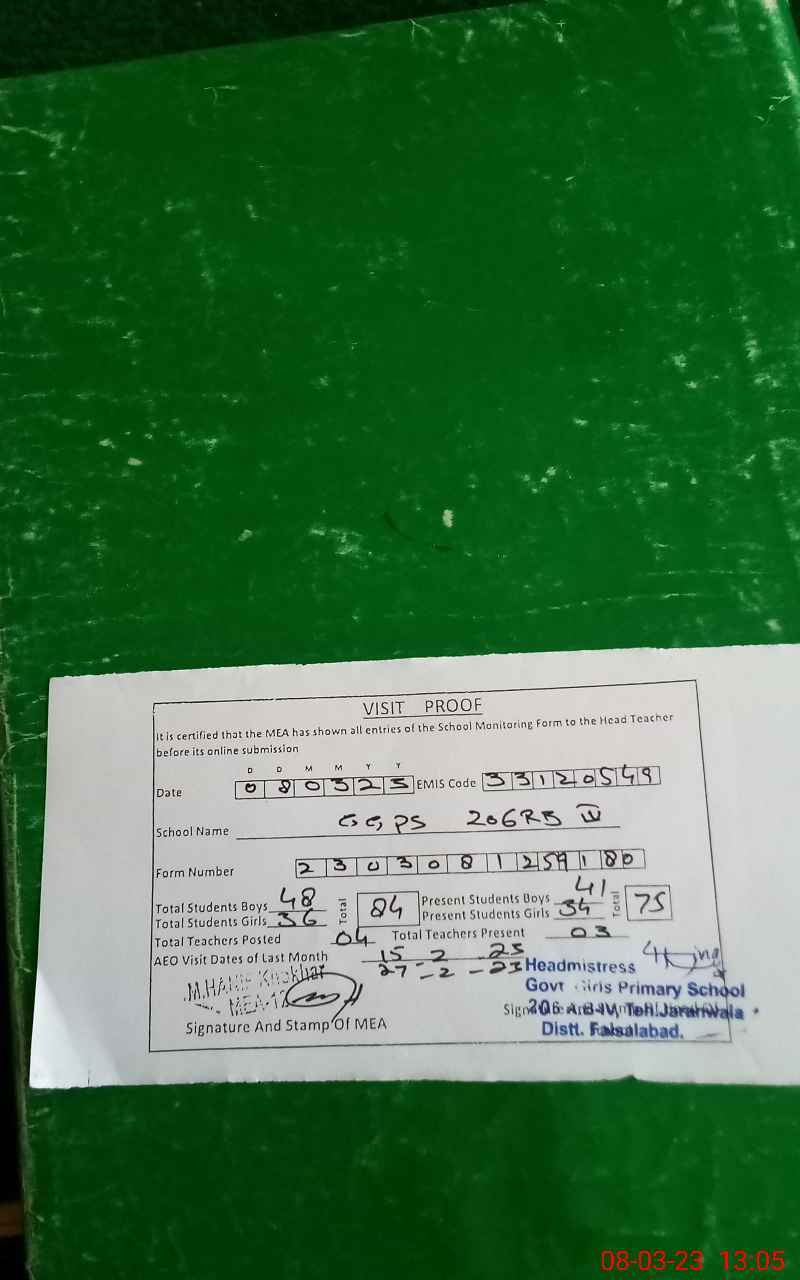 VISIT PROOF
It is certified that the MEA has shown all entries of the School Monitoring Form to the Head Teacher
before its online submission
D D M M Y Y
Date 080323 EMIS Code 33120549
School Name GGPS 206RB IV
Form Number 2303081259180
Total Students Boys 48 Total 84 Present Students Boys 41 Total 75
Total Students Girls 36 Present Students Girls 34
Total Teachers Posted 04 Total Teachers Present 03
AEO Visit Dates of Last Month 15-2-23
27-2-23
M.HANIF Khokhar
MEA-12
Signature And Stamp Of MEA
Headmistress
Govt Girls Primary School
Teh. Jaranwala
Distt. Faisalabad.
08-03-23 13:05